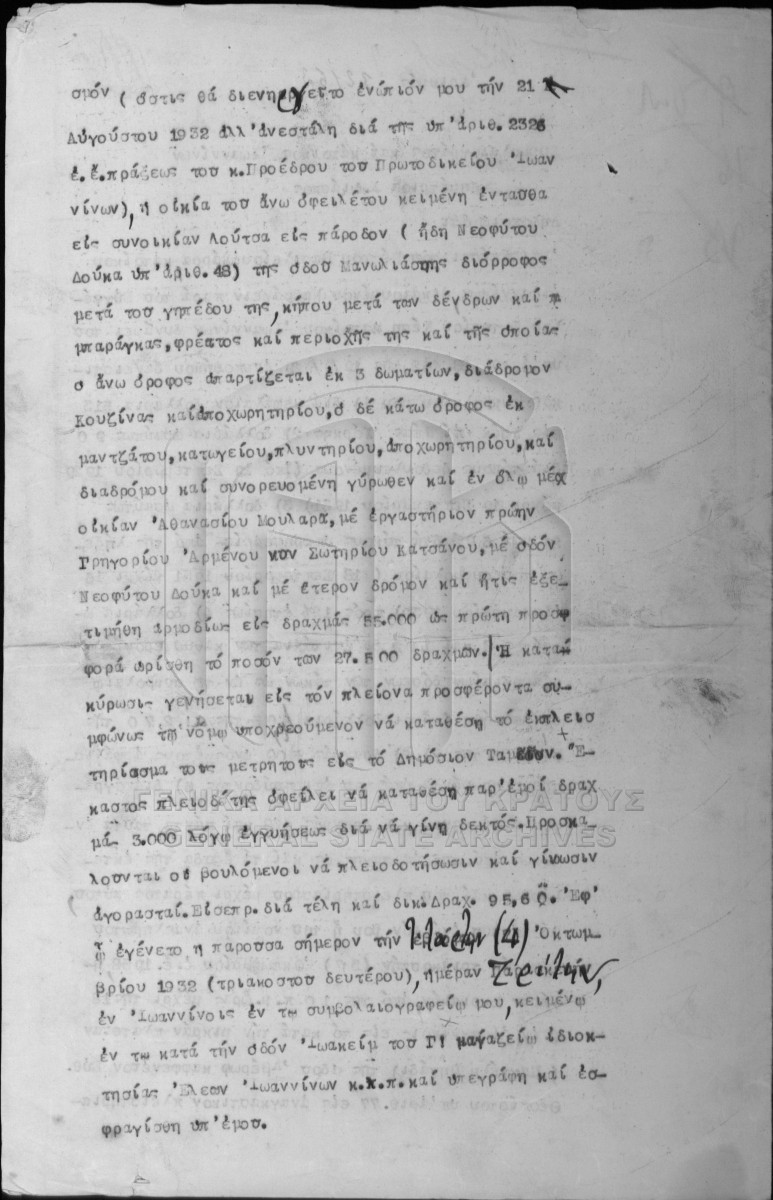 σμόν ( ὅστις θά διενηργεῖτο ἐνώπιόν μου τήν 21
Αὐγούστου 1932 ἀλλ'ἀνεστάλη διά τῆς ὑπ'ἀριθ. 2326
ἐ.ἔ.πράξεως τοῦ κ.Προέδρου τοῦ Πρωτοδικείου Ἰωαν
νίνων), ἡ οἰκία τοῦ ἄνω ὀφειλέτου κειμένη ἐνταῦθα
εἰς συνοικίαν Λούτσα εἰς πάροδον ( ἤδη Νεοφύτου
Δούκα ὑπ'ἀριθ.48) τῆς ὁδοῦ Μανωλιάσσης διόρροφος
μετά τοῦ γηπέδου της, κήπου μετά τῶν δένδρων καί
μπαράγκας,φρέατος καί περιοχῆς της καί τῆς ὁποίας
ὁ ἄνω ὄροφος ἀπαρτίζεται ἐκ 3 δωματίων,διάδρομον
Κουζίνας καίἀποχωρητηρίου,ὁ δέ κάτω ὄροφος ἐκ
μαντζάτου,κατωγείου,πλυντηρίου,ἀποχωρητηρίου,καί
διαδρόμου καί συνορευομένη γύρωθεν καί ἐν ὅλῳ μέ
οἰκίαν Ἀθανασίου Μουλαρᾶ,μέ ἐργαστήριον πρώην
Γρηγορίου Ἀρμένου νῦν Σωτηρίου Κατσάνου,μέ ὁδόν
Νεοφύτου Δούκα καί μέ ἕτερον δρόμον καί ἥτις ἐξε-
τιμήθη ἁρμοδίως εἰς δραχμάς 55.000 ὡς πρώτη προσφ
φορά ὡρίσθη τό ποσόν τῶν 27.500 δραχμῶν. Ἡ κατα
κύρωσις γενήσεται εἰς τόν πλείονα προσφέροντα συ-
μφώνως τῷ νόμῳ ὑποχρεούμενον νά καταθέσῃ τό ἐκπλεισ
τηρίασμα τοῖς μετρητοῖς εἰς τό Δημόσιον Ταμεῖον. Ἕ-
καστος πλειοδότης ὀφείλει νά καταθέσῃ παρ'ἐμοί δραχ
μάς 3.000 λόγῳ ἐγγυήσεως διά νά γίνῃ δεκτός.Προσκα-
λοῦνται οἱ βουλόμενοι νά πλειοδοτήσωσιν καί γίνωσιν
ἀγορασταί.Εἰσεπρ.διά τέλη καί δικ.Δραχ. 95,60. Ἐφ'
ᾧ ἐγένετο ἡ παροῦσα σήμερον τήν τετάρτην (4) Ὀκτωμ-
βρίου 1932 (τριακοστοῦ δευτέρου),ἡμέραν Τρίτην,
ἐν Ἰωαννίνοις ἐν τῷ συμβολαιογραφείῳ μου,κειμένῳ
ἐν τῷ κατά τήν ὁδόν Ἰωακείμ τοῦ Γ! μαγαζείῳ ἰδιοκ-
τησίας Ἐλεῶν Ἰωαννίνων κ.λ.π.καί ὑπεγράφη καί ἐσ-
φραγίσθη ὑπ'ἐμοῦ.
ΓΕΝΙΚΑ ΑΡΧΕΙΑ ΤΟΥ ΚΡΑΤΟΥΣ
GENERAL STATE ARCHIVES